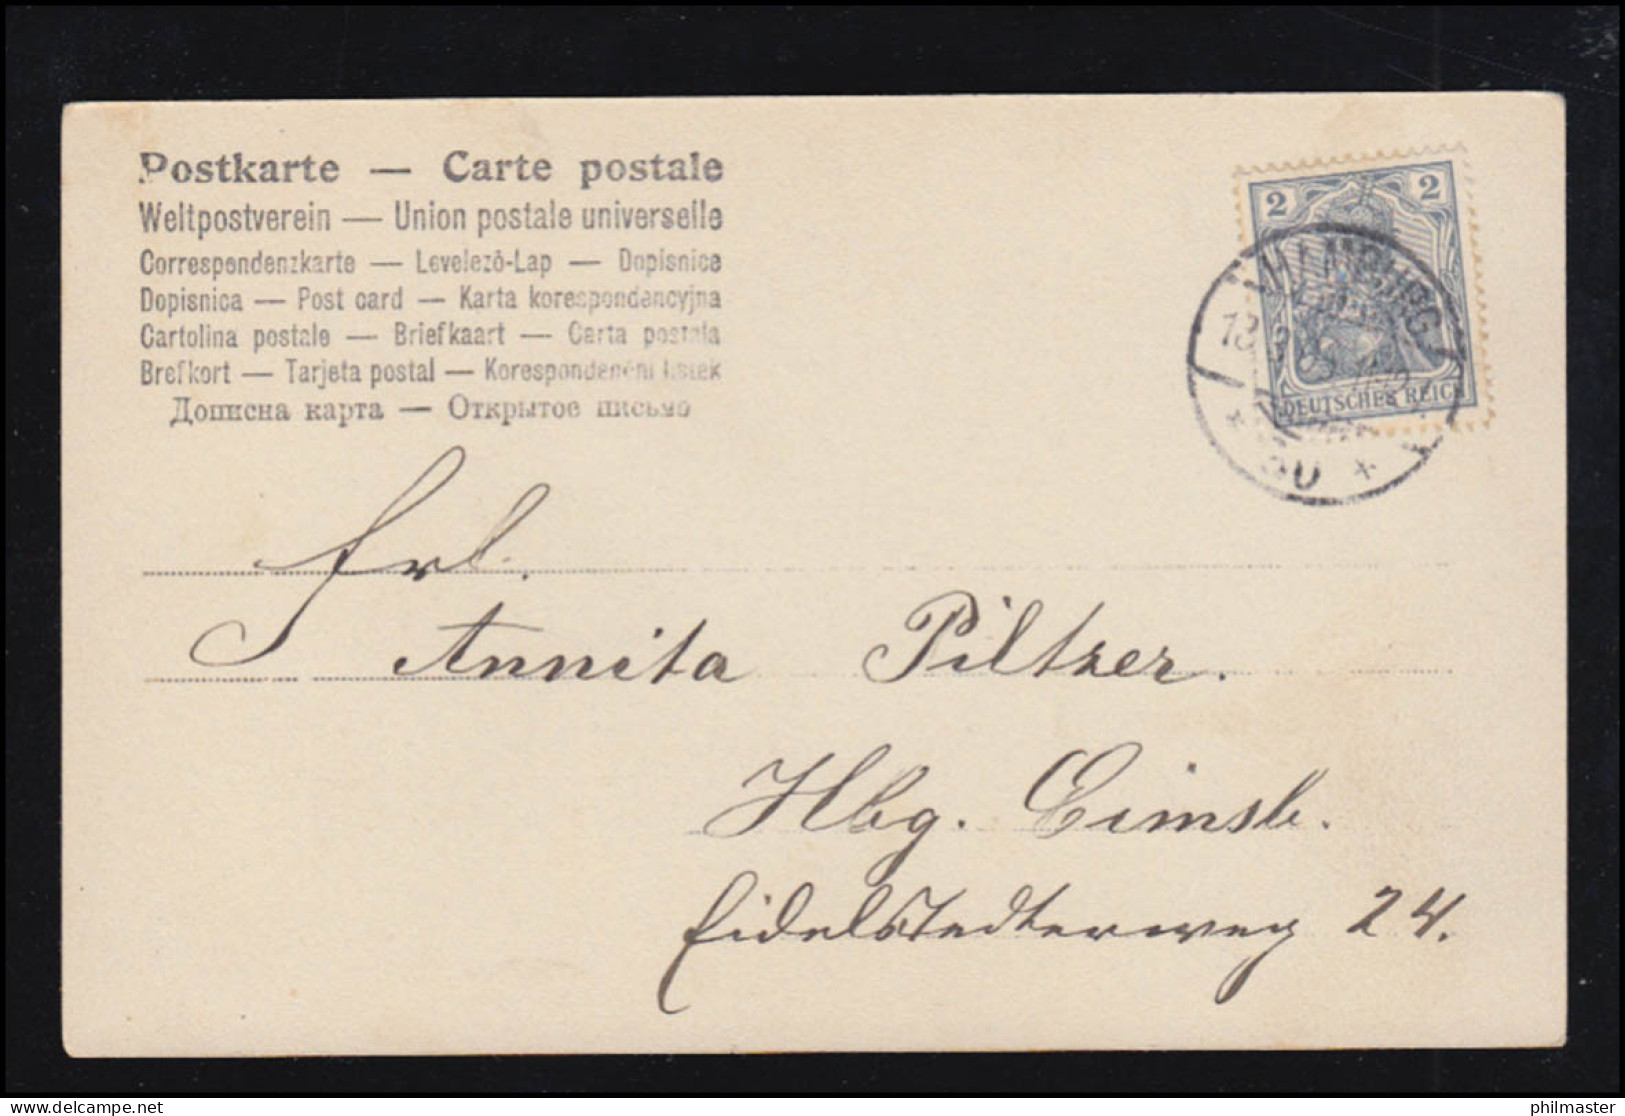 Postkarte — Carte postale
Weltpostverein — Union postale universelle
Correspondenzkarte — Levelező-Lap — Dopisnice
Dopisnica — Post card — Karta korespondencyjna
Cartolina postale — Briefkaart — Carta postala
Brefkort — Tarjeta postal — Korespondenčni listek
Дописна карта — Открытое письмо
2 2
HAMBURG
DEUTSCHES REICH
Frl.
Annita Piltzer.
Hbg. Eimsb.
Eidelstedterweg 24.
www.delcampe.net
philmaster